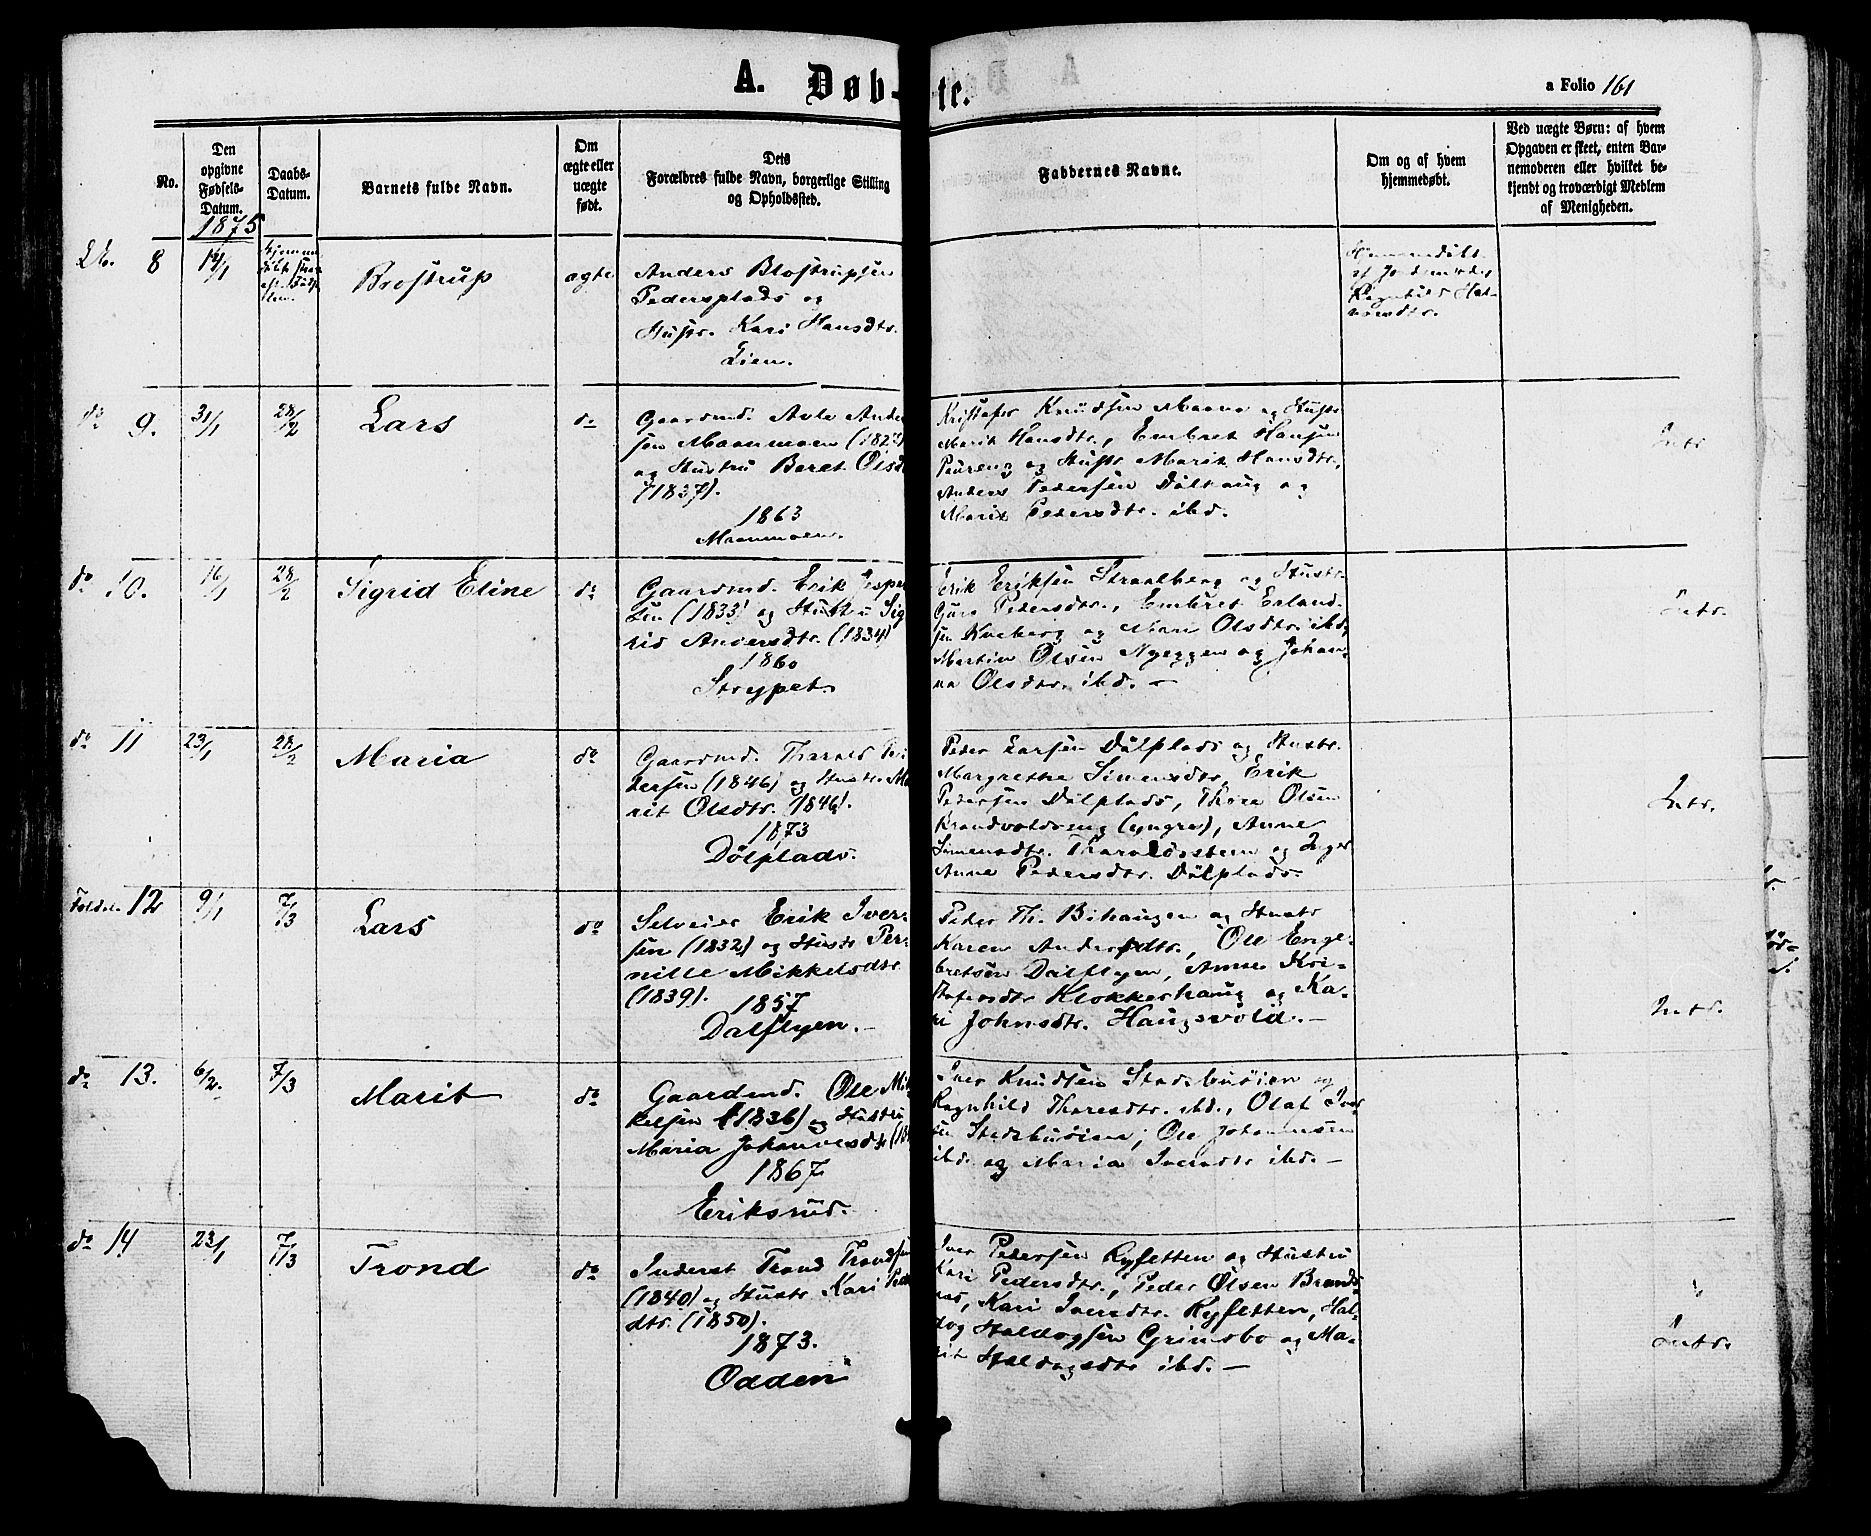 A. Døb-te.
a Folio 161
No.
Den opgivne Fødsels-Datum.
Daabs-Datum.
Barnets fulde Navn.
Om ægte eller uægte født.
Dets Forældres fulde Navn, borgerlige Stilling og Opholdssted.
Faddernes Navne.
Om og af hvem hjemmedøbt.
Ved uægte Børn: af hvem Opgaven er skeet, enten Barnemoderen eller hvilket bekjendt og troværdigt Medlem af Menigheden.
1875
8
14/1
Brostrup
ægte
Anders Blostrupsen
Pedersplads og
Hustr. Kari Hansdtr.
Lien.
Hjemmedøbt
af Jordemoder
Ragnhild Hal-
vorsdtr.
do 9.
31/1
28/2
Lars
do
Gaardmd. Avle Ander
sen Maanmoen (1827)
og Hustru Beret Olsd
(1837).
1863
Maanmoen.
Kristofer Knudsen Maana og Hustr
Marit Hansdtr., Embret Hansen
og Hustr Marit Hansdtr.,
Anders Pedersen Dølhaug og
Marit Pedersdtr. ibd.
Intr
do 10.
16/1
28/2
Sigrid Eline
do
Gaardmd. Erik Esper
sen (1833) og Hustru Sig
rid Andersdtr. (1834)
1860
Strypet.
Erik Eriksen Straalberg og Hustr.
Guro Pedersdtr., Embret Erland-
sen Kveberg og Mari Olsdtr. ibd,
Martin Olsen Nyeggen og Johan-
na Olsdtr. ibd. —
Intr.
do 11
23/1
28/2
Maria
do
Gaardmd. Tharald Pe
dersen (1846) og Hustr. Ma
rit Olsdtr. (1846).
1873
Dølplads.
Peder Larsen Dølplads og Hustr.
Margrethe Simensdtr, Erik
Pedersen Dølplads, Thore Olsen
Brandvoldseng (yngre), Anne
Simensdtr. Tharaldsstuen og Inger
Anne Pedersdtr. Dølplads.
Intr.
Foldal. 12
9/1
7/3
Lars
do
Selveier Erik Iver-
sen (1832) og Hustr Per-
nille Mikkelsdtr
(1839).
1857
Dalflyen. —
Peder Th. Bihaugen og Hustr
Karen Andersdtr., Ole Enge-
bretsen Dalflyen, Anne Kri-
stofersdtr Klokkerhaug og Ka-
ri Johnsdtr. Haugsvold. —
Intr.
do 13.
6/2.
7/3
Marit
do
Gaardmd. Ole Mik
kelsen (1836) og Hustru
Maria Johannesdtr (18
1867
Eriksrud.
Iver Knudsen Stadsbuøien og
Ragnhild Tharesdtr. ibd., Olaf Iver
sen Stadsbuøien, Ole Johannesen
ibd. og Maria Iversdtr ibd. —
do 14
23/1
7/3
Trond
do
Inderst Trond Trondsen
(1840) og Hustr. Kari Peders
dtr. (1850).
1873.
Odden
Iver Pedersen Ryfetten og Hustru
Kari Pedersdtr., Peder Olsen Brands
nes, Kari Iversdtr. Ryfetten, Hal-
dog Haldogsen Grimsbo og Ma-
rit Haldogsdtr ibd. —
Intr.